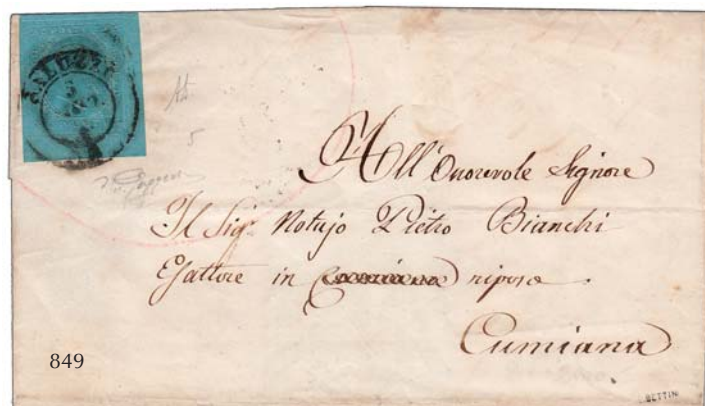 SALUZZO
5
All' Onorevole Signore
Il Sig.r Notajo Pietro Bianchi
Esattore in riposo
Cumiana
849
BETTIN